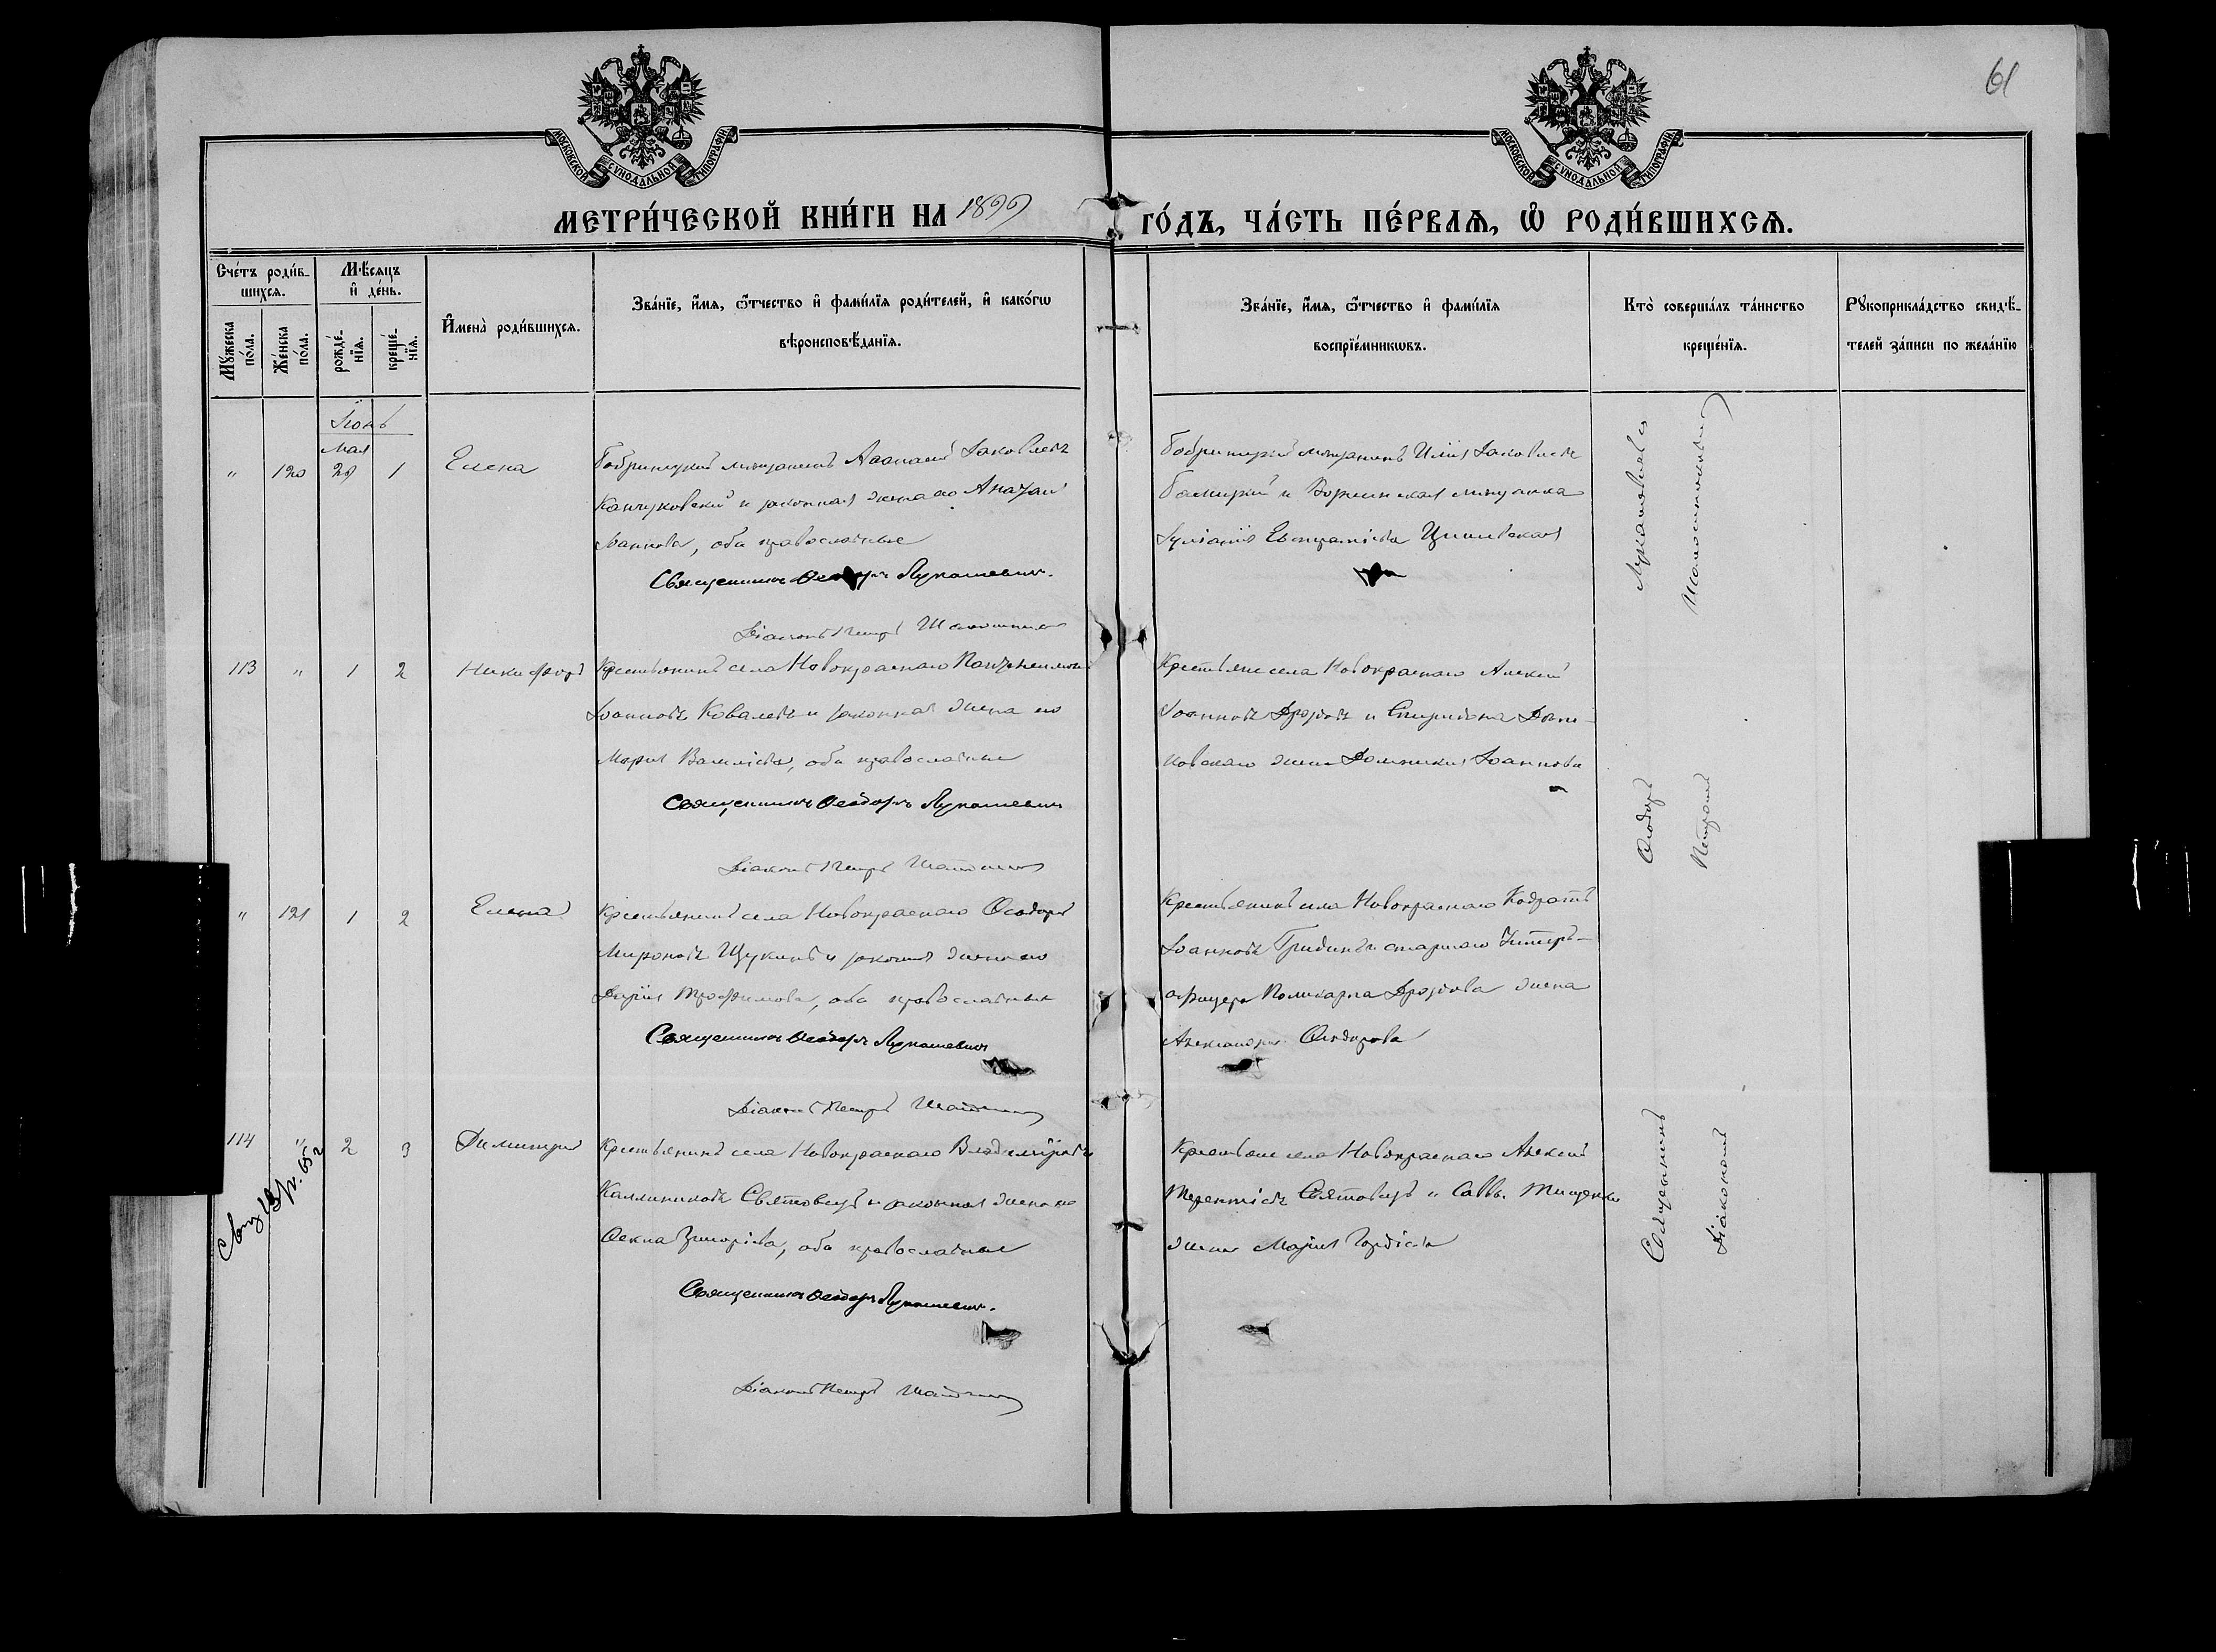 61
МОСКОВСКОЙ СѴНОДАЛЬНОЙ ТИПОГРАФІИ
МОСКОВСКОЙ СѴНОДАЛЬНОЙ ТИПОГРАФІИ
МЕТРИ́ЧЕСКОЙ КНИ́ГИ НА 1899 ГО́ДЪ, ЧА́СТЬ ПЕ́РВАѦ, Ѽ РОДИ́ВШИХСѦ.
Сче́тъ роди́в-
шихсѧ.
Мꙋ́жеска по́ла.
Же́нска по́ла.
Мѣ́сѧцъ
и҆ де́нь.
рожде́-нїѧ.
креще́-нїѧ.
И҆мена̀ роди́вшихсѧ.
Зва́нїе, и҆́мѧ, ѻ҆́тчество и҆ фами́лїѧ роди́телей, и҆ како́гѡ
вѣроисповѣ́данїѧ.
Зва́нїе, и҆́мѧ, ѻ҆́тчество и҆ фами́лїѧ
воспрїе́мникѡвъ.
Кто̀ соверша́лъ та́инство
креще́нїѧ.
Рꙋкоприкла́дство свидѣ́-
телей за́писи по жела́нїю
Іюнь
мая
" 120 29 1 Елена
Бобринецкій мѣщанинъ Аѳанасій Іаковлевъ
и законная жена его
Іоаннова, оба православные
Священникъ Ѳеодоръ Лукашевичъ.
Діаконъ Петръ
Бобринецкій мѣщанинъ Илія Іаковлевъ
и мѣщанка
Іуліанія
113 " 1 2 Никифоръ
Крестьянинъ села Новокраснаго Пантелеимонъ
Іоанновъ Ковалевъ и законная жена его
Марія Васильева, оба православные
Священникъ Ѳеодоръ Лукашевичъ
Діаконъ Петръ
Крестьяне села Новокраснаго Алексій
Іоанновъ Дроздовъ и Спиридона
жена Домникія Іоаннова
" 121 1 2 Елена
Крестьянинъ села Новокраснаго Ѳеодоръ
Мироновъ Щукинъ и законная жена его
Дарія Трофимова, оба православные
Священникъ Ѳеодоръ Лукашевичъ
Діаконъ Петръ
Крестьянинъ села Новокраснаго Кодратъ
Іоанновъ Гридинъ и старшаго Унтеръ-
офицера Поликарпа Дроздова жена
Александра Ѳеодорова
114 " 2 3 Димитрій
Крестьянинъ села Новокраснаго Владиміръ
Каллиниковъ Святовецъ и законная жена его
Ѳекла Григоріева, оба православные
Священникъ Ѳеодоръ Лукашевичъ.
Діаконъ Петръ
Крестьяне села Новокраснаго Алексій
Терентіевъ Святовецъ и Саввы Тищенка
жена Марія Гордіева
Священникъ Ѳеодоръ Лукашевичъ
Діакономъ Петромъ